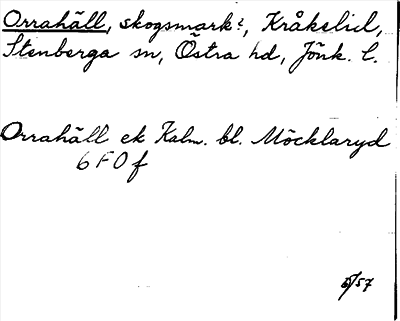 Orrahäll, skogsmark?, Kråkelid,
Stenberga sn, Östra hd, Jönk. l.
Orrahäll ek Kalm. bl. Möcklaryd
6 F 0 f
5/57